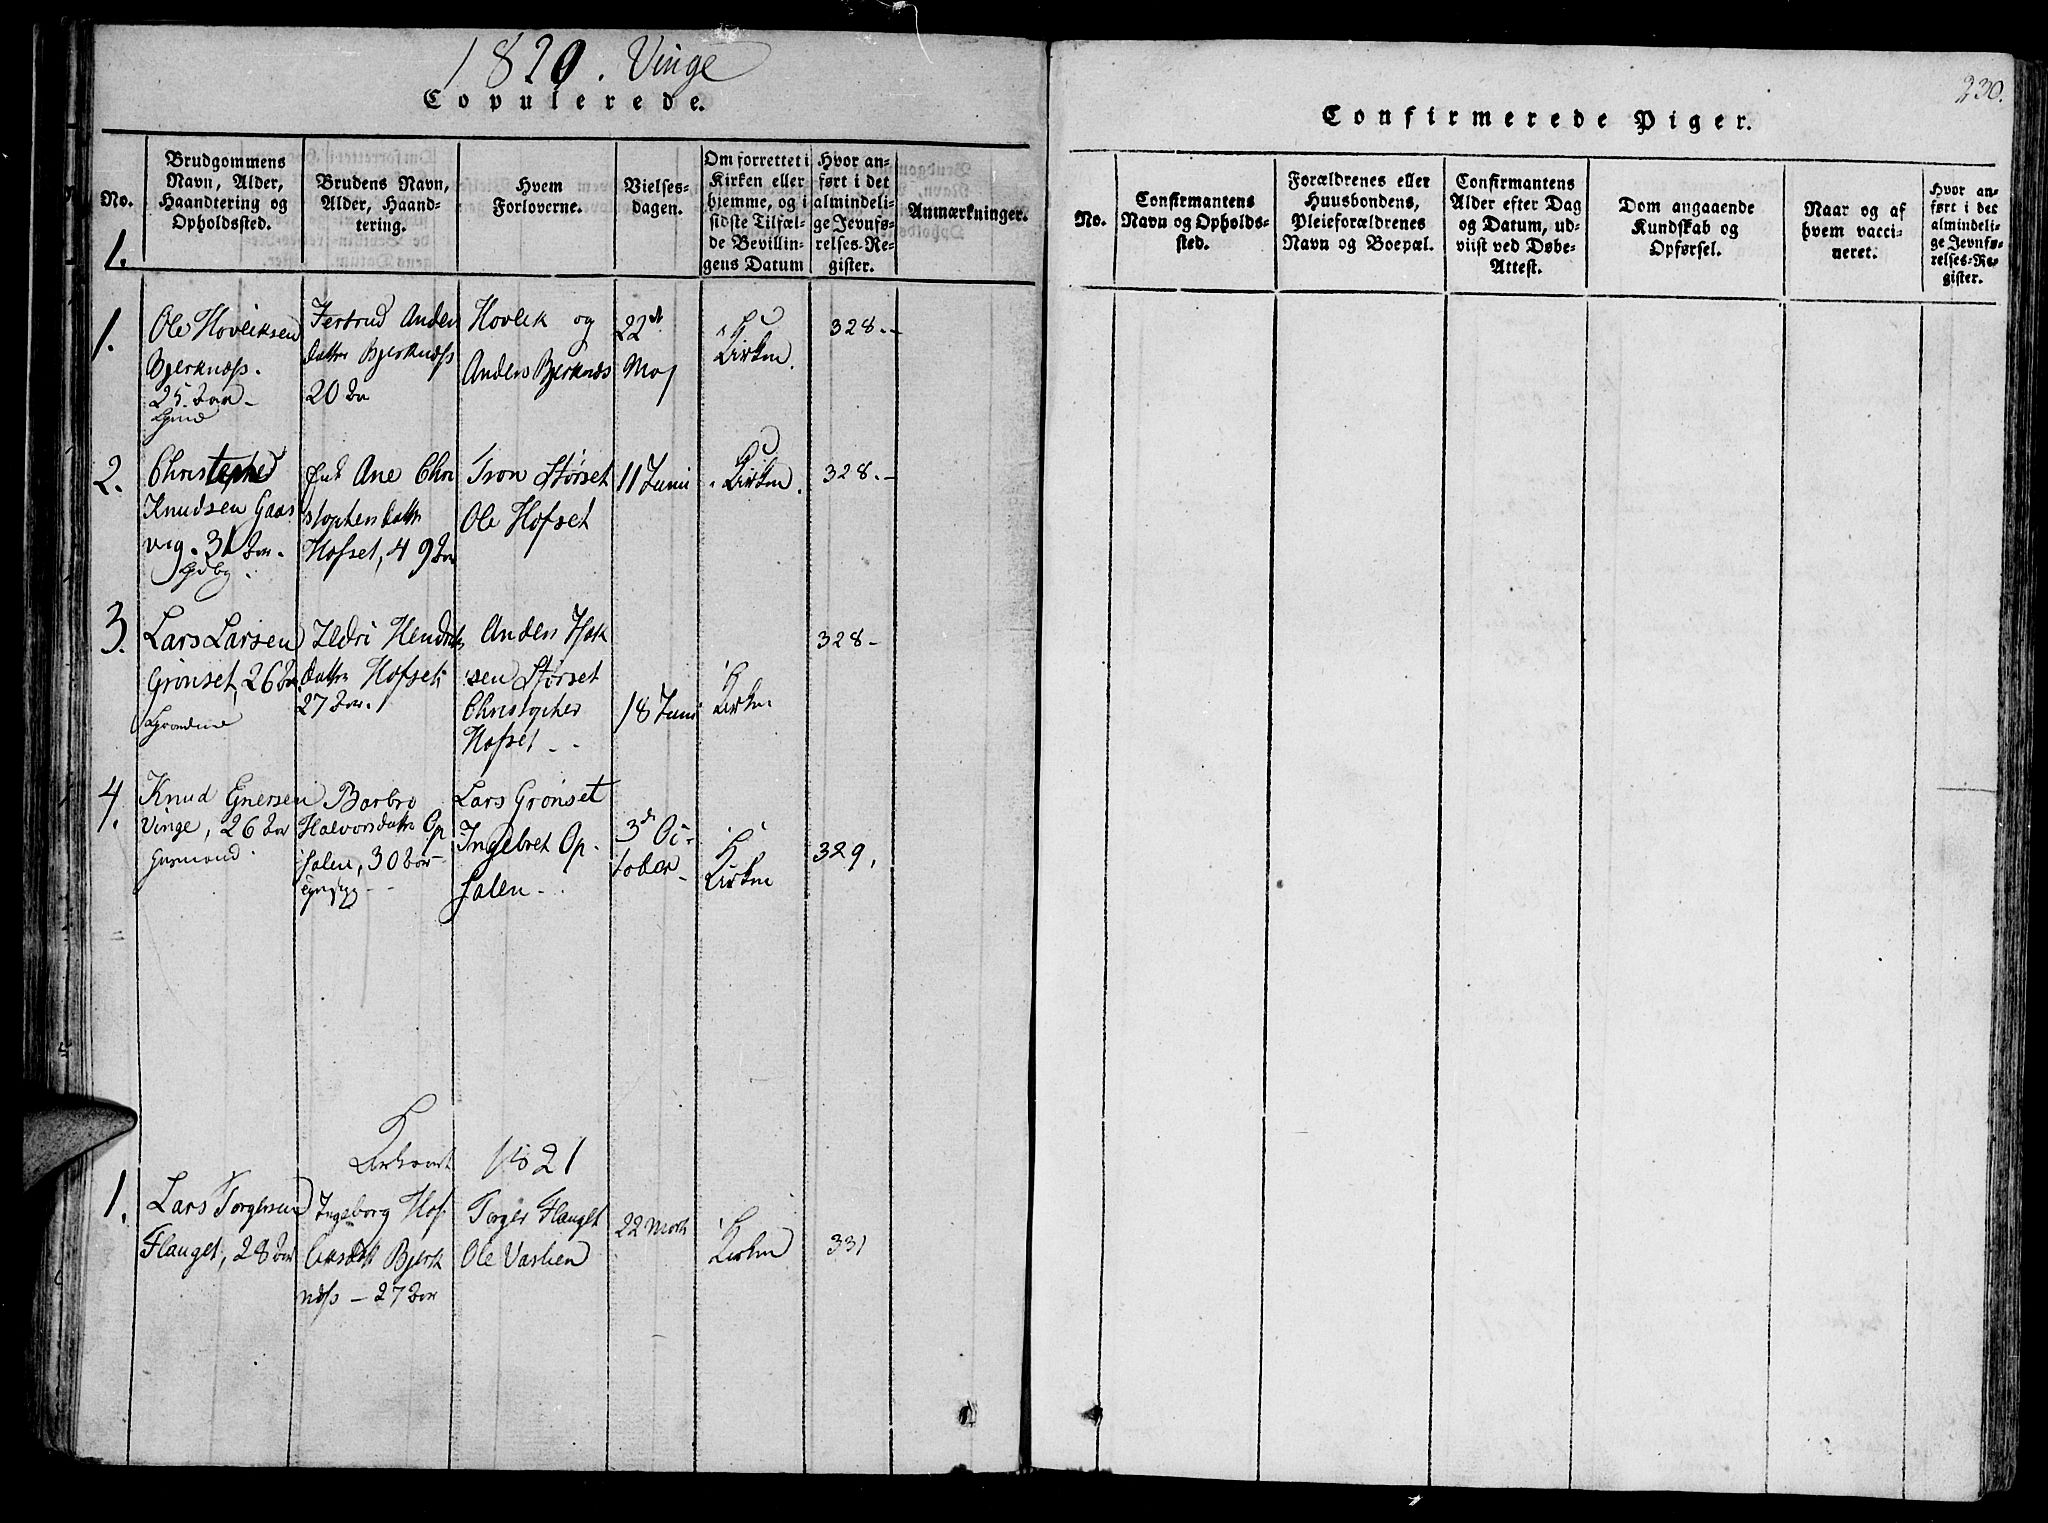 1820. Vinge
Copulerede.
No.
Brudgommens Navn, Alder, Haandtering og Opholdssted.
Brudens Navn, Alder, Haandtering.
Hvem Forloverne.
Vielsesdagen.
Om forrettet i Kirken eller hjemme, og i sidste Tilfælde Bevillingens Datum
Hvor anført i det almindelige Jevnførelses-Register.
Anmærkninger.
1.
1.
Ole Hovelksen
Bjerknæss.
25 Aar
Jertrud Anders
datter Bjerknæss
20 Aar
Hovlek og
Anders Bjerknæs
22de
Maj
Kirken.
328.
2.
Knudsen Gaas
vig. 31 Aar.
Enk Ane Chri
stophersdatter
Hofset, 49 Aar
Iron Størset
Ole Hofset
11 Juni
Kirken.
328.
3.
Lars Larsen
Grønset, 26 Aar
Ildri Hendriks
datter Hofset
27 Aar.
Anders Isak
sen Størset
Christopher
Hofset
18 Juni
Kirken
328
4.
Knud Enersen
Vinge, 26 Aar
Huusmand.
Barbro
Halvorsdatter Op
salen, 30 Aar
Lars Grønset
Ingebret Op
salen
3de Oc
tober
Kirken
329.
Kirkeaaret 1821
1.
Lars Torgersen
Flauget, 28 Aar
Ingeborg Hof
Bjerk
næss – 27 Aar
Torger Flauget
Ole Vaslien
22 Marts
Kirken
331
230.
Confirmerede Piger.
No.
Confirmantens Navn og Opholdssted.
Forældrenes eller Huusbondens, Pleieforældrenes Navn og Boepæl.
Confirmantens Alder efter Dag og Datum, udviist ved Døbe-Attest.
Dom angaaende Kundskab og Opførsel.
Naar og af hvem vaccineret.
Hvor anført i det almindelige Jevnførelses-Register.